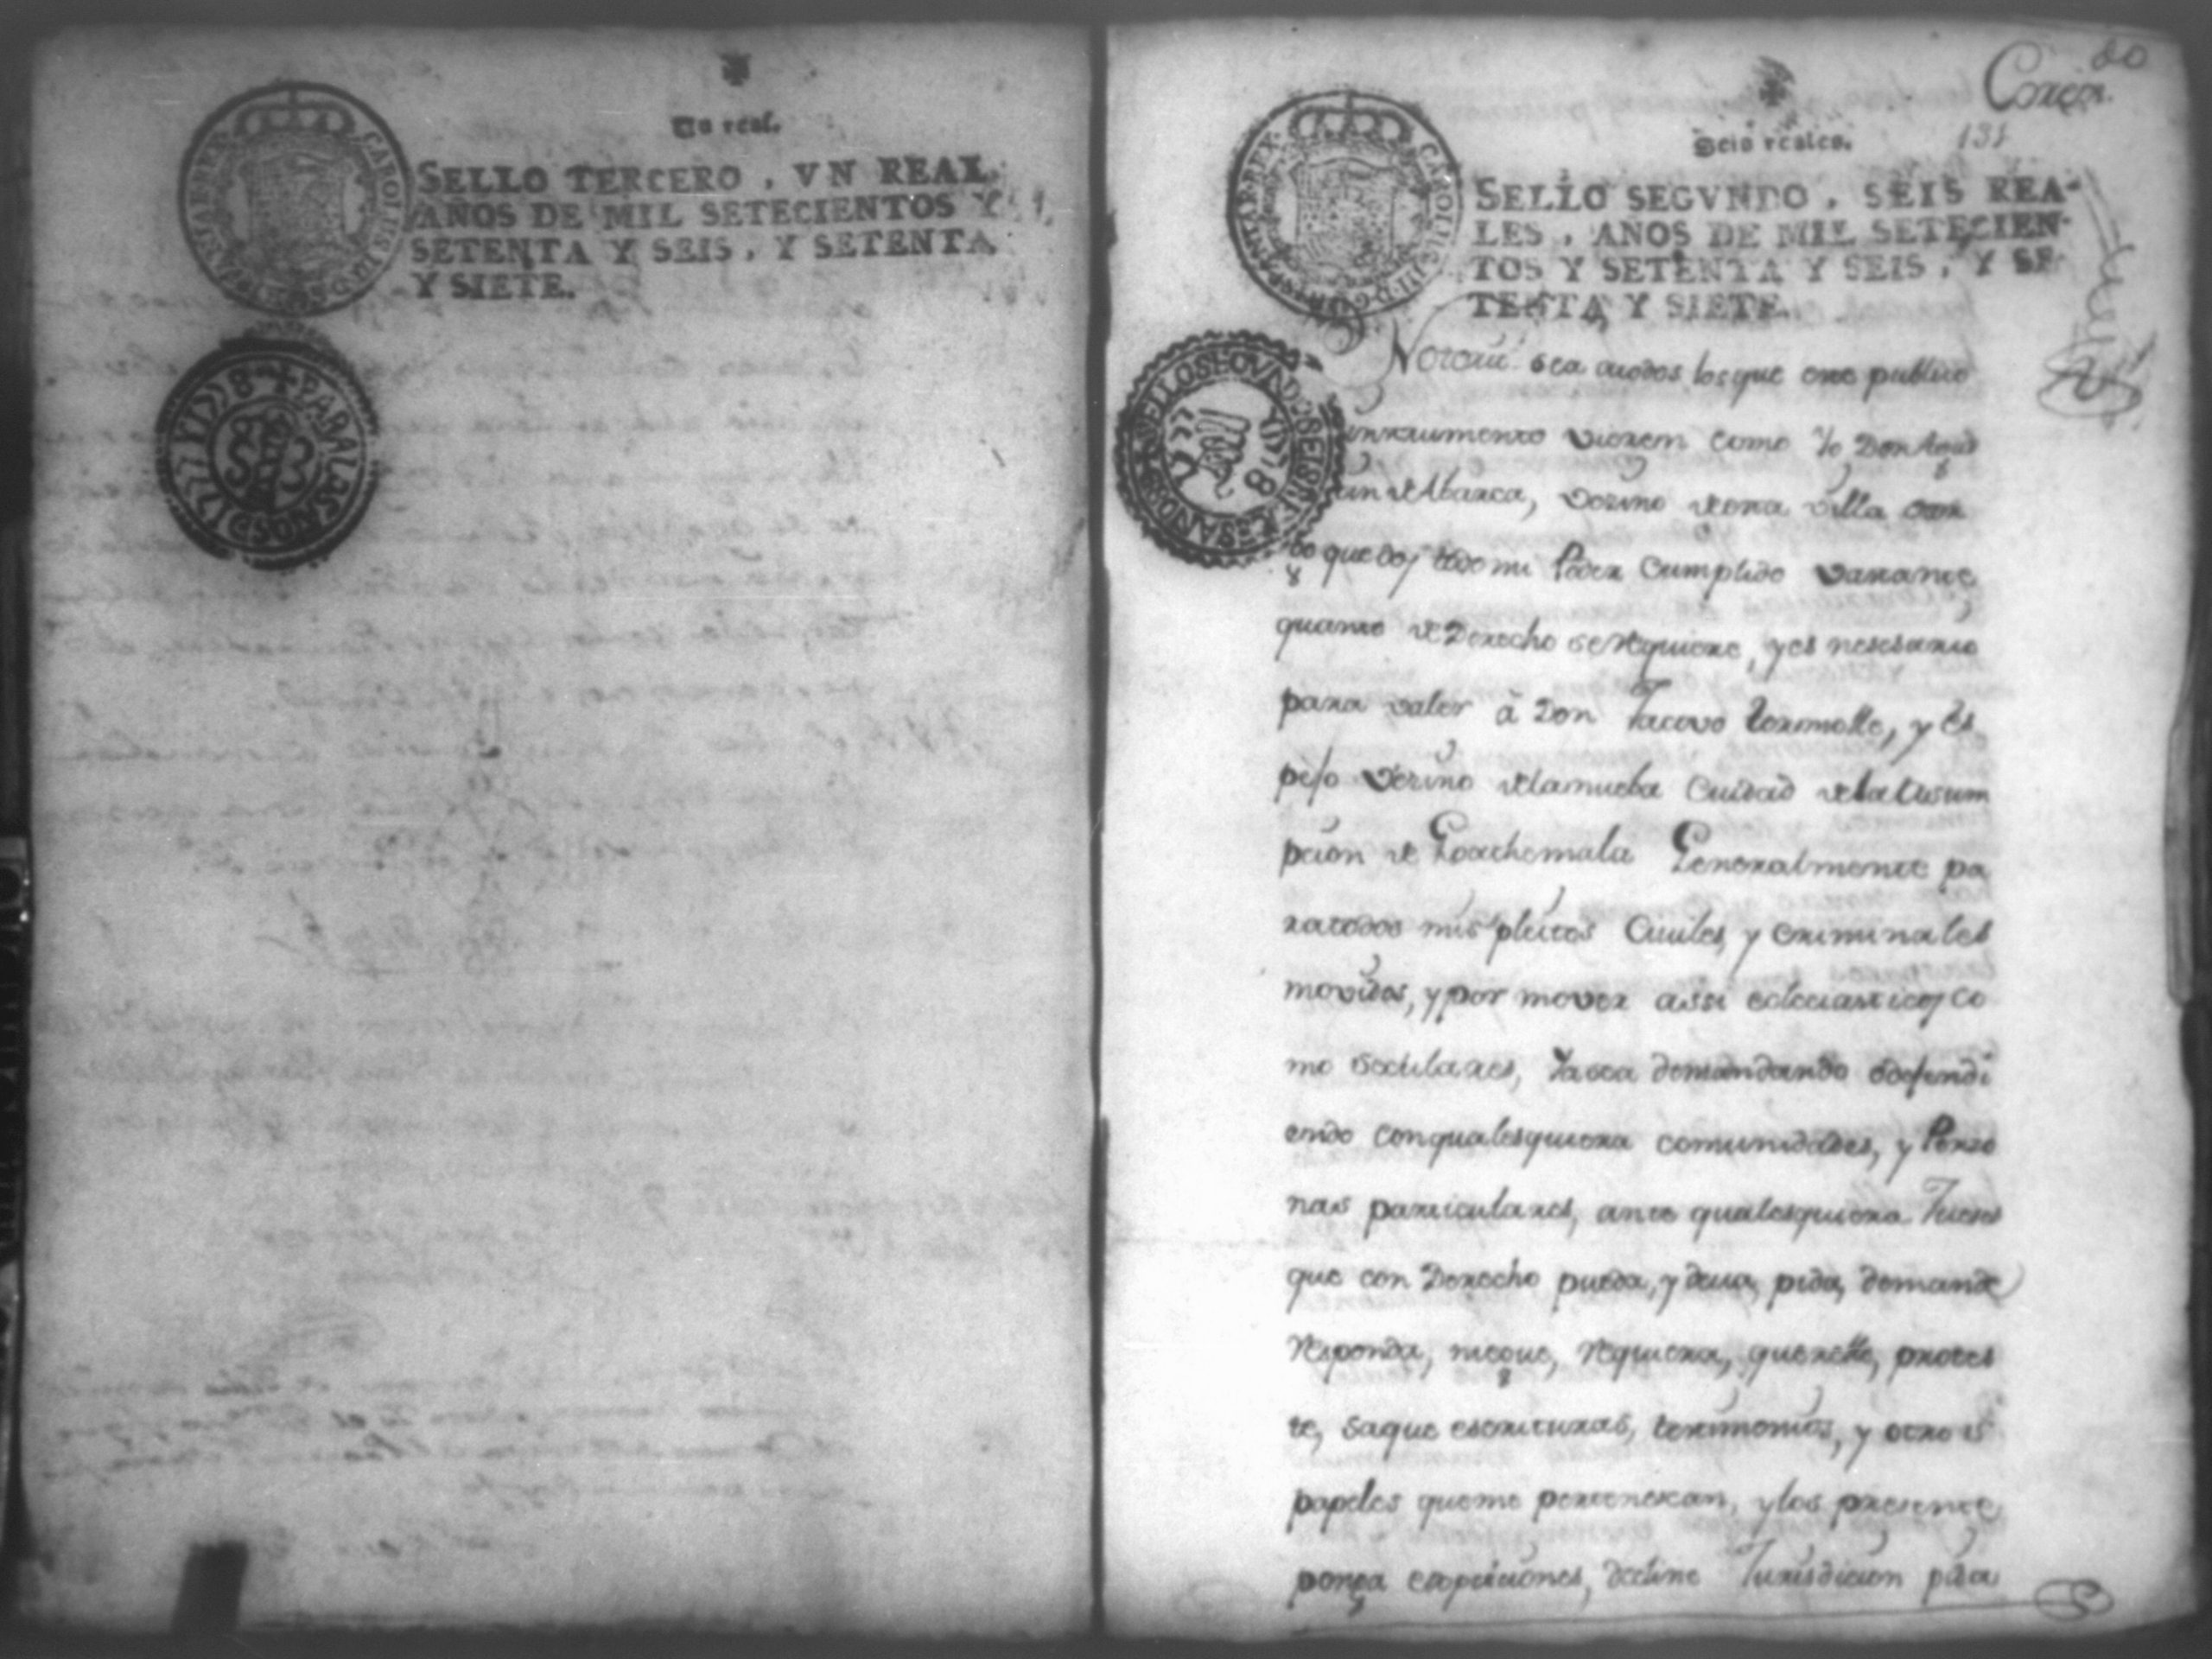 Un real.
SELLO TERCERO, VN REAL
AÑOS DE MIL SETECIENTOS Y
SETENTA Y SEIS, Y SETENTA
Y SIETE.
CAROLUS III D G HISPANIAR REX
PARA LOS ANOS D 1777 Y 1778
20
Corregr.
131
Seis reales.
SELLO SEGVNDO, SEIS REA-
LES, AÑOS DE MIL SETECIEN-
TOS Y SETENTA Y SEIS, Y SE-
TENTA Y SIETE.
CAROLUS III D G HISPANIAR REX
1778
Notorio sea atodos los que este publico
instrumento vieren como Yo Don Agus
tin de Abarca, Vezino de esta villa otor
go que doy todo mi Poder Cumplido vastante
quanto de Derecho se requiere, y es nesesario
para valer à Don Jacovo y Es
pejo Vezino dela nueba Ciudad dela Asum
pcion de Goathemala Generalmente pa
ratodos mis pleitos Ciuiles, y criminales
movidos, y por mover assi eclesiasticos co
mo seculares, Ya sea demandando o defendi
endo con qualesquiera comunidades, y Perso
nas particulares, ante qualesquiera Jueses
que con Derecho pueda, y deua, pida, demande
responda, niegue, requiera, querelle, protes
te, saque escrituras, testimonios, y otros
papeles que me pertenescan, y los presente,
ponga excepciones, decline Jurisdicion pida